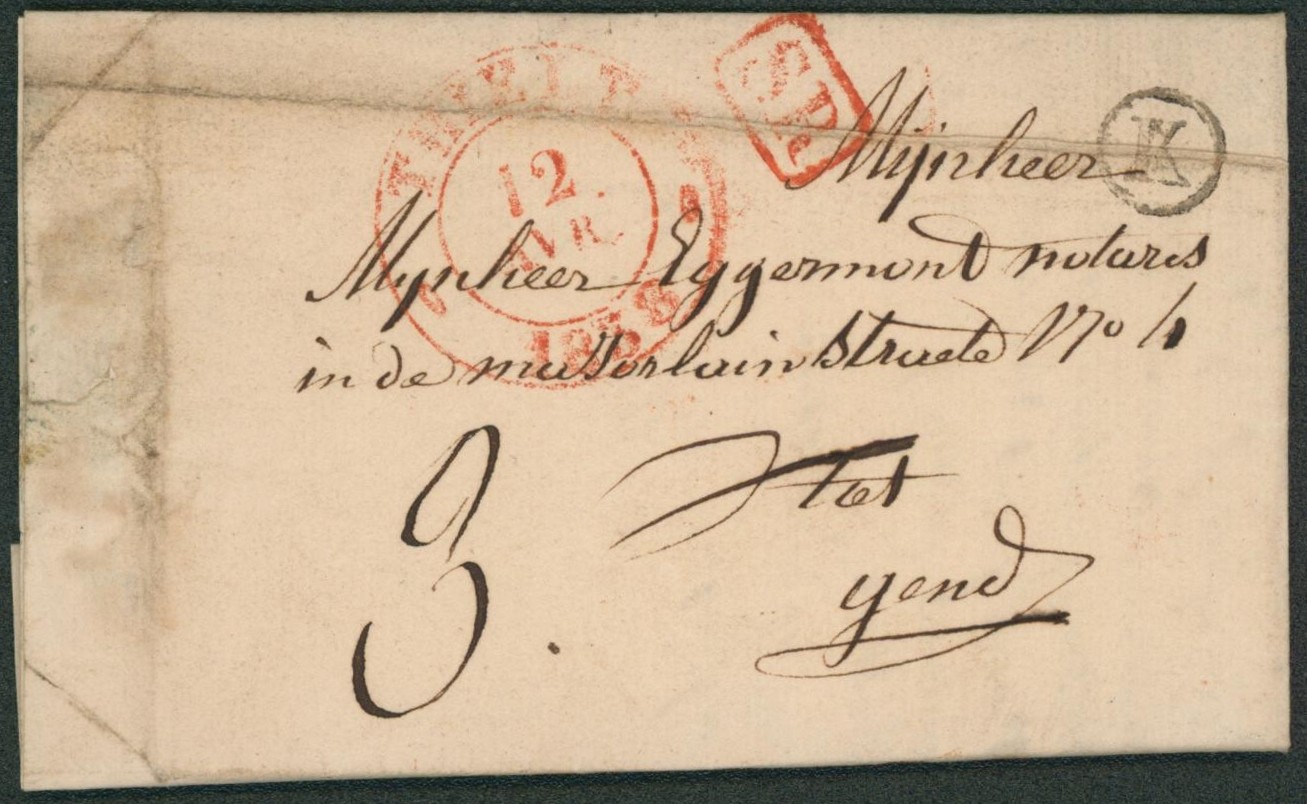 THIELT
12
AVR.
1838
SR
K
Mijnheer
Mynheer Eggermont notares
in de straete No 4
3.
tot
gend